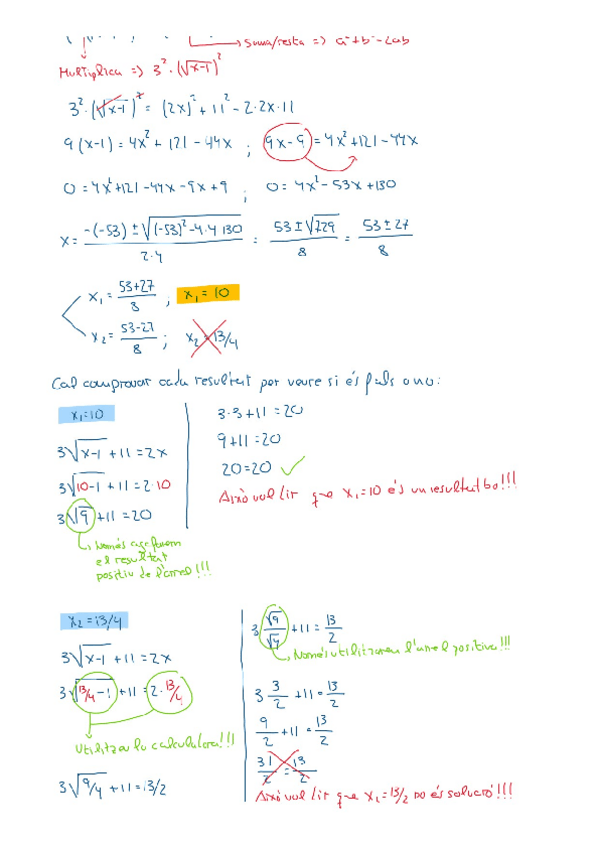 Suma/resta => a²+b²-2ab
Multiplica => 3²·(√x-1)²
3²·(√x-1)² = (2x)²+11²-2·2x·11
9(x-1)=4x²+121-44x ; 9x-9=4x²+121-44x
0=4x²+121-44x-9x+9 ; 0=4x²-53x+130
x= -(-53)±√(-53)²-4·4·130 / 2·4 = 53±√729 / 8 = 53±27 / 8
x₁= 53+27 / 8 ; x₁=10
x₂= 53-27 / 8 ; x₂=13/4
Cal comprovar cada resultat per veure si és fals o no:
x₁=10
3√x-1 +11=2x
3√10-1 +11=2·10
3√9 +11=20
Només agafarem
el resultat
positiu de l'arrel!!!
3·3+11=20
9+11=20
20=20 ✓
Això vol dir que x₁=10 és un resultat bo!!!
x₂=13/4
3√x-1 +11=2x
3√13/4-1 +11=2·13/4
Utilitzeu la calculadora!!!
3√9/4 +11=13/2
3 √9/√4 +11= 13/2
Només utilitzarem l'arrel positiva!!!
3 3/2 +11= 13/2
9/2 +11= 13/2
31/2 = 13/2
Això vol dir que x₁=13/2 no és solució!!!